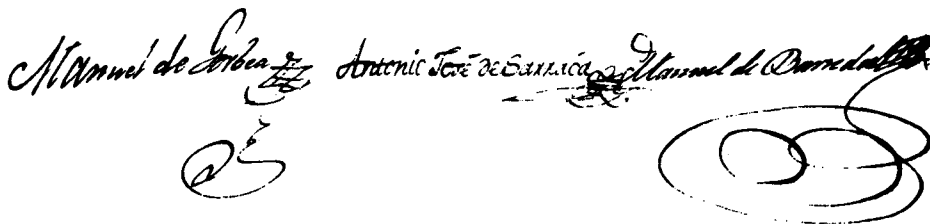 Manuel de Gorbea Antonio José de Sarraca Manuel de Barreda